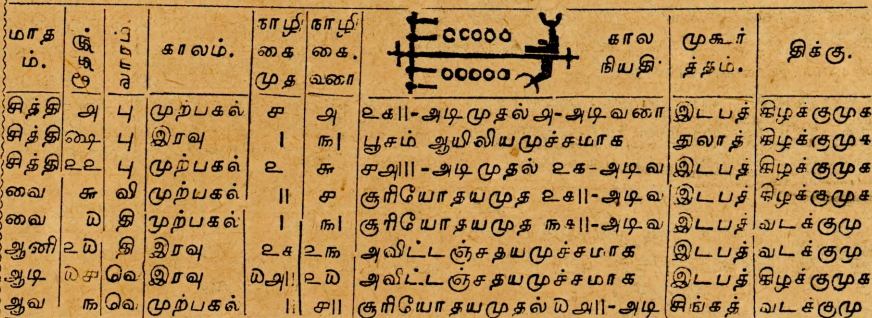 மாதம். தேதி. வாரப். காலம். நாழிகை முத நாழிகை. வரை கால நியதி முகூர்த்தம். திக்கு.
சித்தி அ பு முற்பகல் ச அ உக||-அடிமுதல் அ-அடிவரை இடபத் கிழக்குமுக
சித்தி பு இரவு | ங| பூசம் ஆயிலியமுச்சமாக துலாத் கிழக்குமுக
சித்தி உஉ பு முற்பகல் உ சு சஅ|||-அடிமுதல் உக-அடிவ இடபத் கிழக்குமுக
வை சு வி முற்பகல் || ச சூரியோதயமுத உக||-அடிவ இடபத் கிழக்குமுக
வை ௰ தி முற்பகல் | ங| சூரியோதயமுத ஙக||-அடிவ இடபத் வடக்குமு
ஆனி உ௰ தி இரவு உக உங அவிட்டஞ்சதயமுச்சமாக இடபத் வடக்குமு
ஆடி ௰ச வெ இரவு ௰அ|| உ௰ அவிட்டஞ்சதயமுச்சமாக இடபத் கிழக்குமுக
ஆவ ங வெ முற்பகல் || ச|| சூரியோதயமுதல் ௰அ||-அடி சிங்கத் வடக்குமு